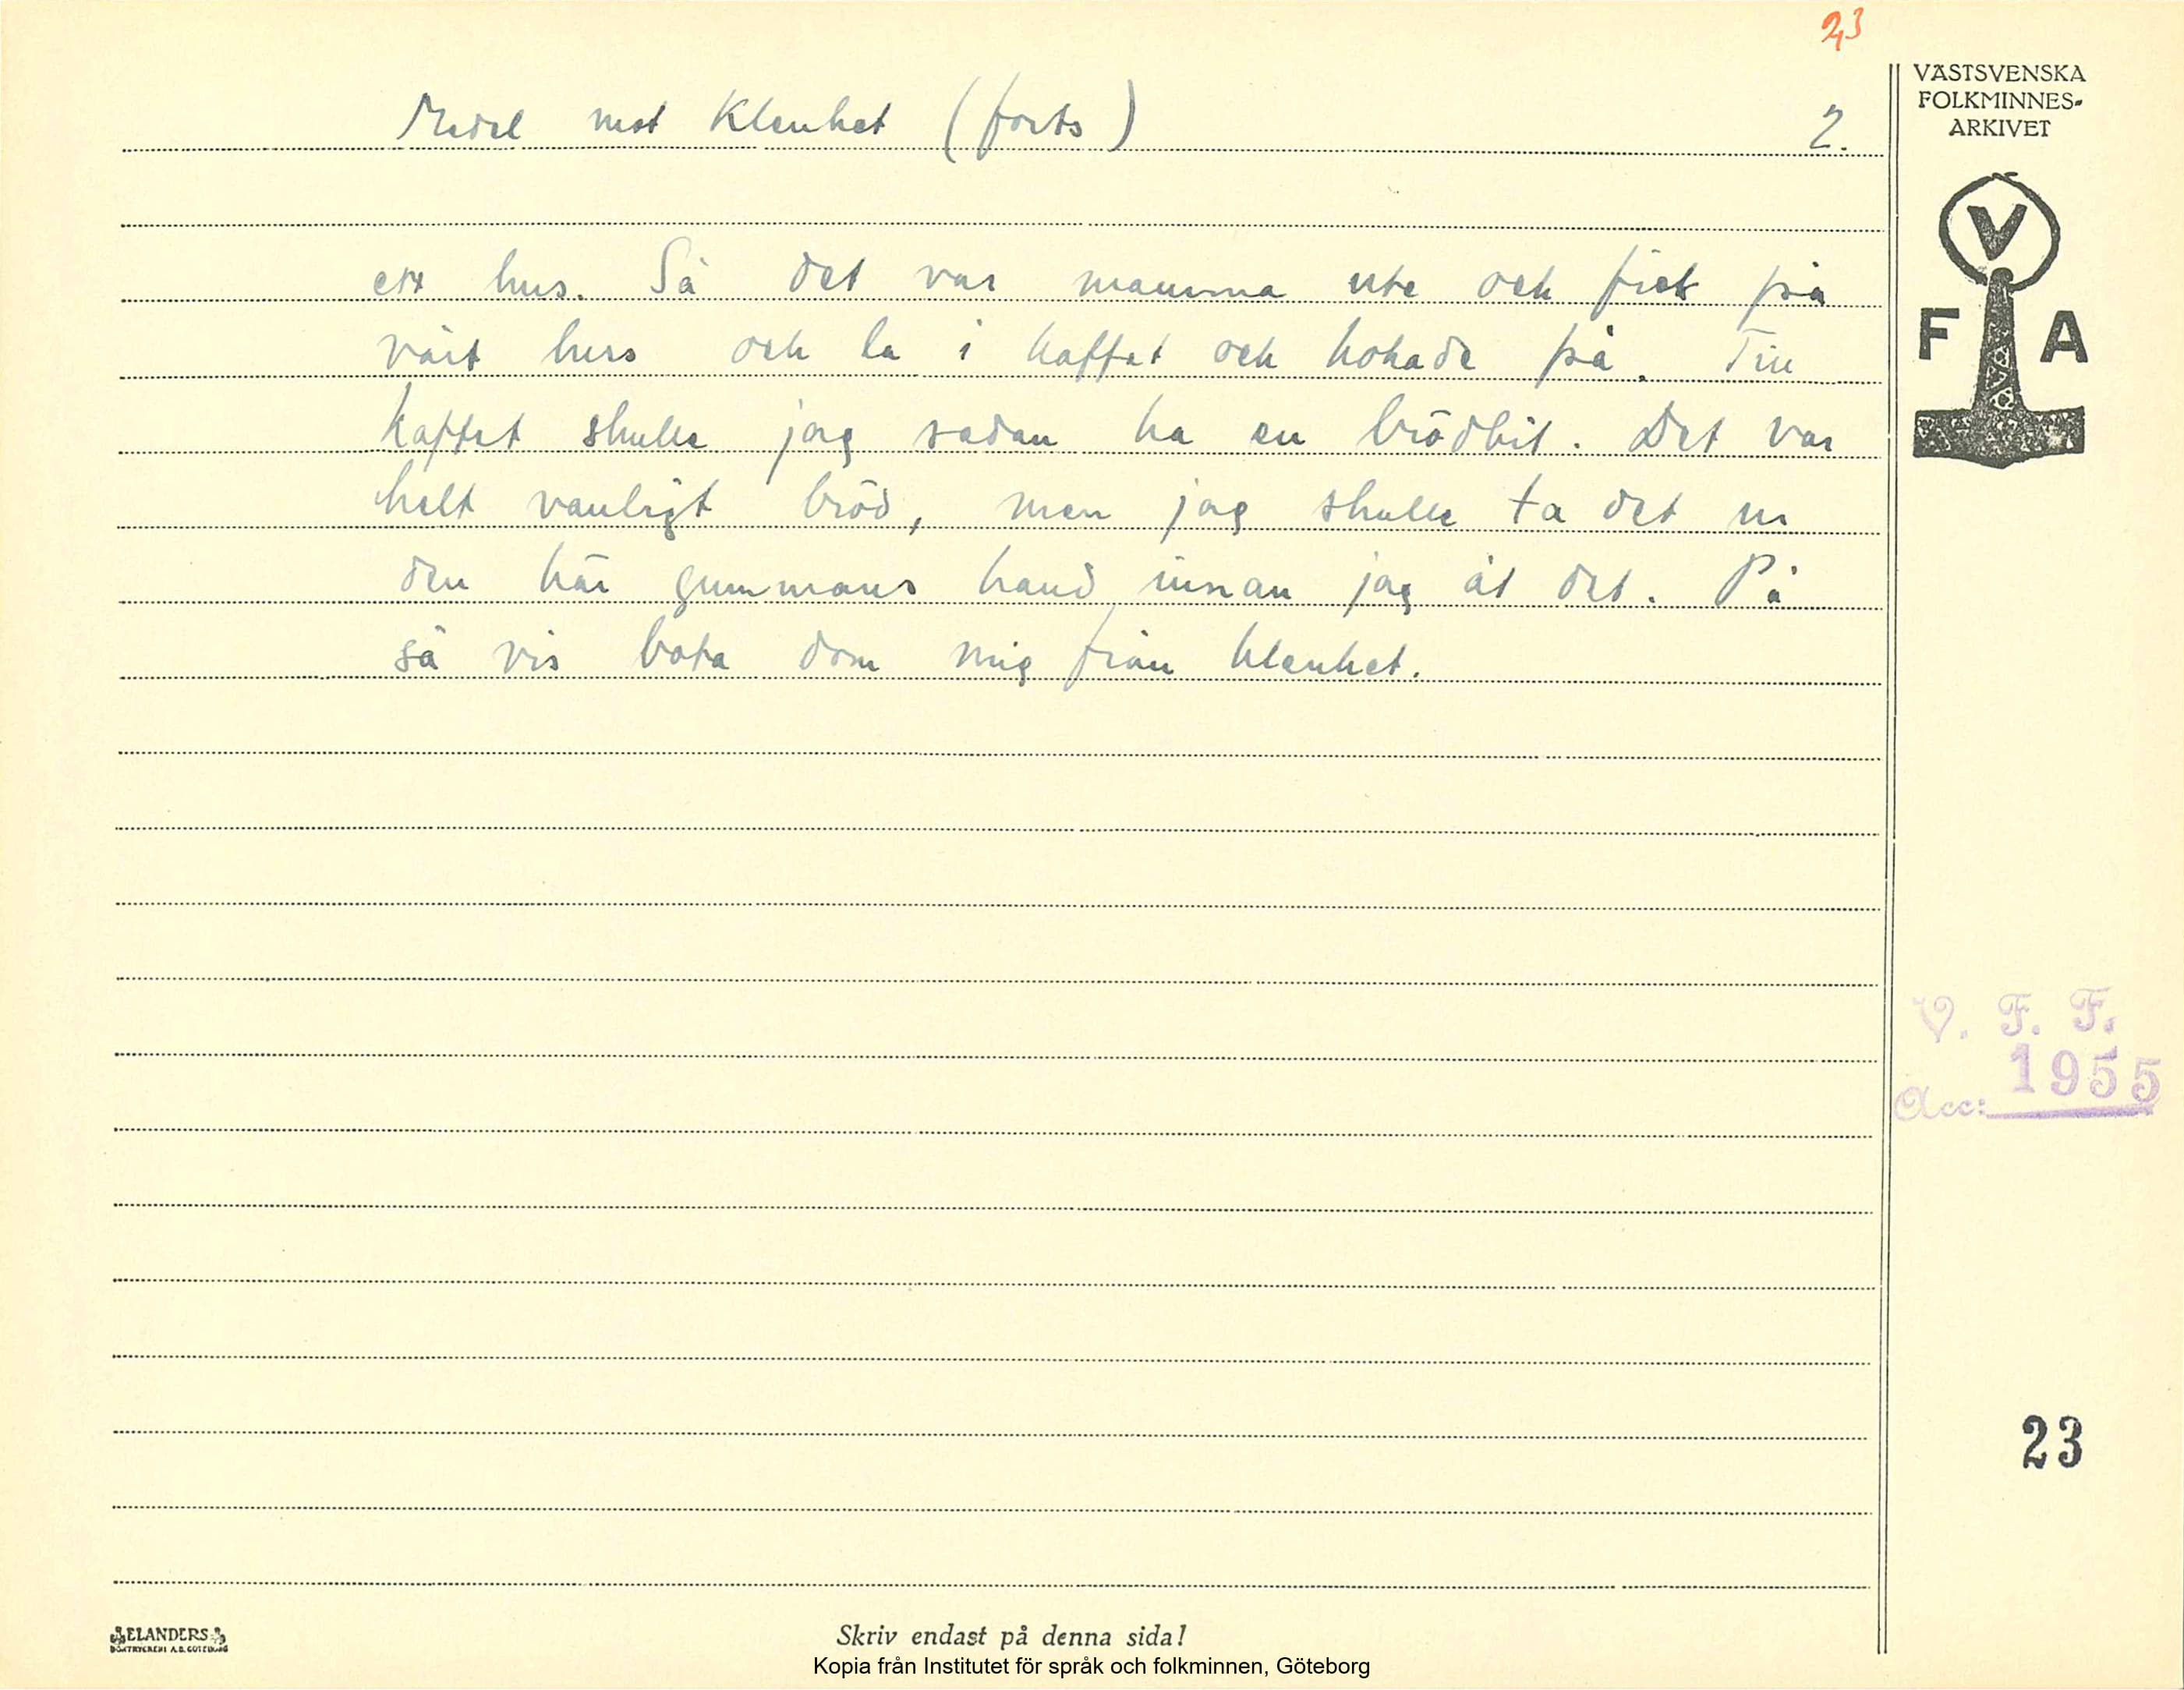 23
Medel mot Klenhet (forts)
2.
VÄSTSVENSKA
FOLKMINNES-
ARKIVET
V
F A
ett hus. Så det var mamma ute och fick på
vårt hus och la i kaffet och kokade på. Till
kaffet skulle jag sedan ha en brödbit. Det var
helt vanligt bröd, men jag skulle ta det ur
den här gummans hand innan jag åt det. På
så vis bota dom mig från klenhet.
V. F. F.
Acc: 1955
23
ELANDERS
BOKTRYCKERI A.B. GÖTEBORG
Skriv endast på denna sida!
Kopia från Institutet för språk och folkminnen, Göteborg